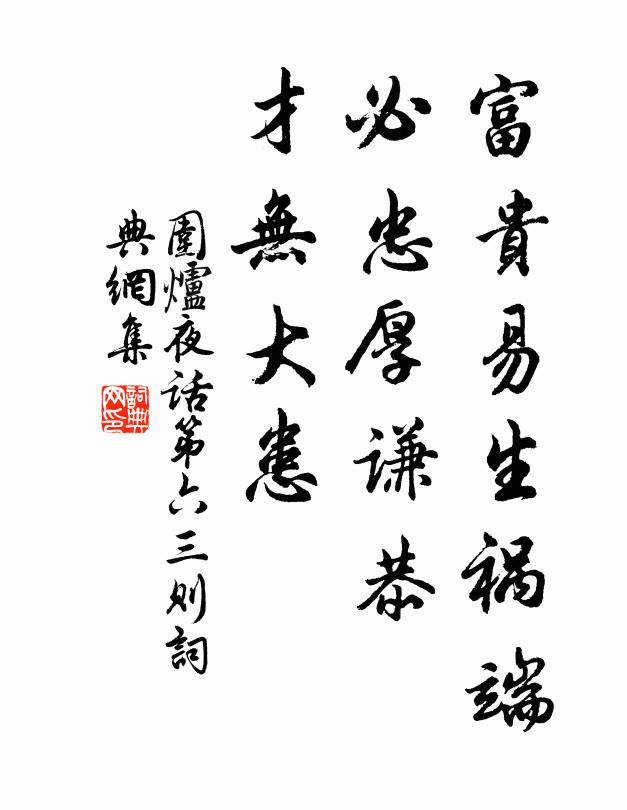 富貴易生祸端
必忠厚谦恭
才無大患
圍爐夜话第六三则詞
典網集
詞典
网印